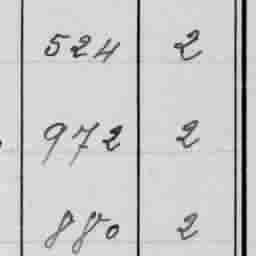 524 2
972 2
880 2